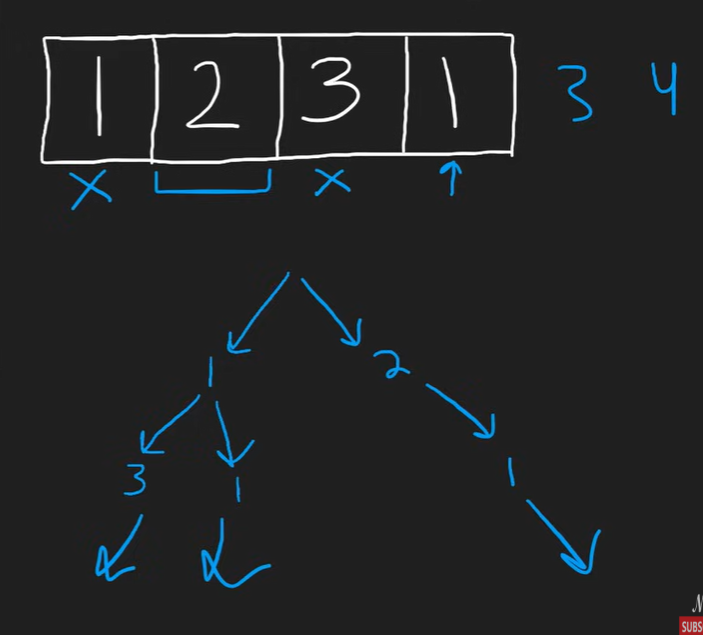 1 2 3 1 3 4
X X
1 2
3 1 1
N
SUBS